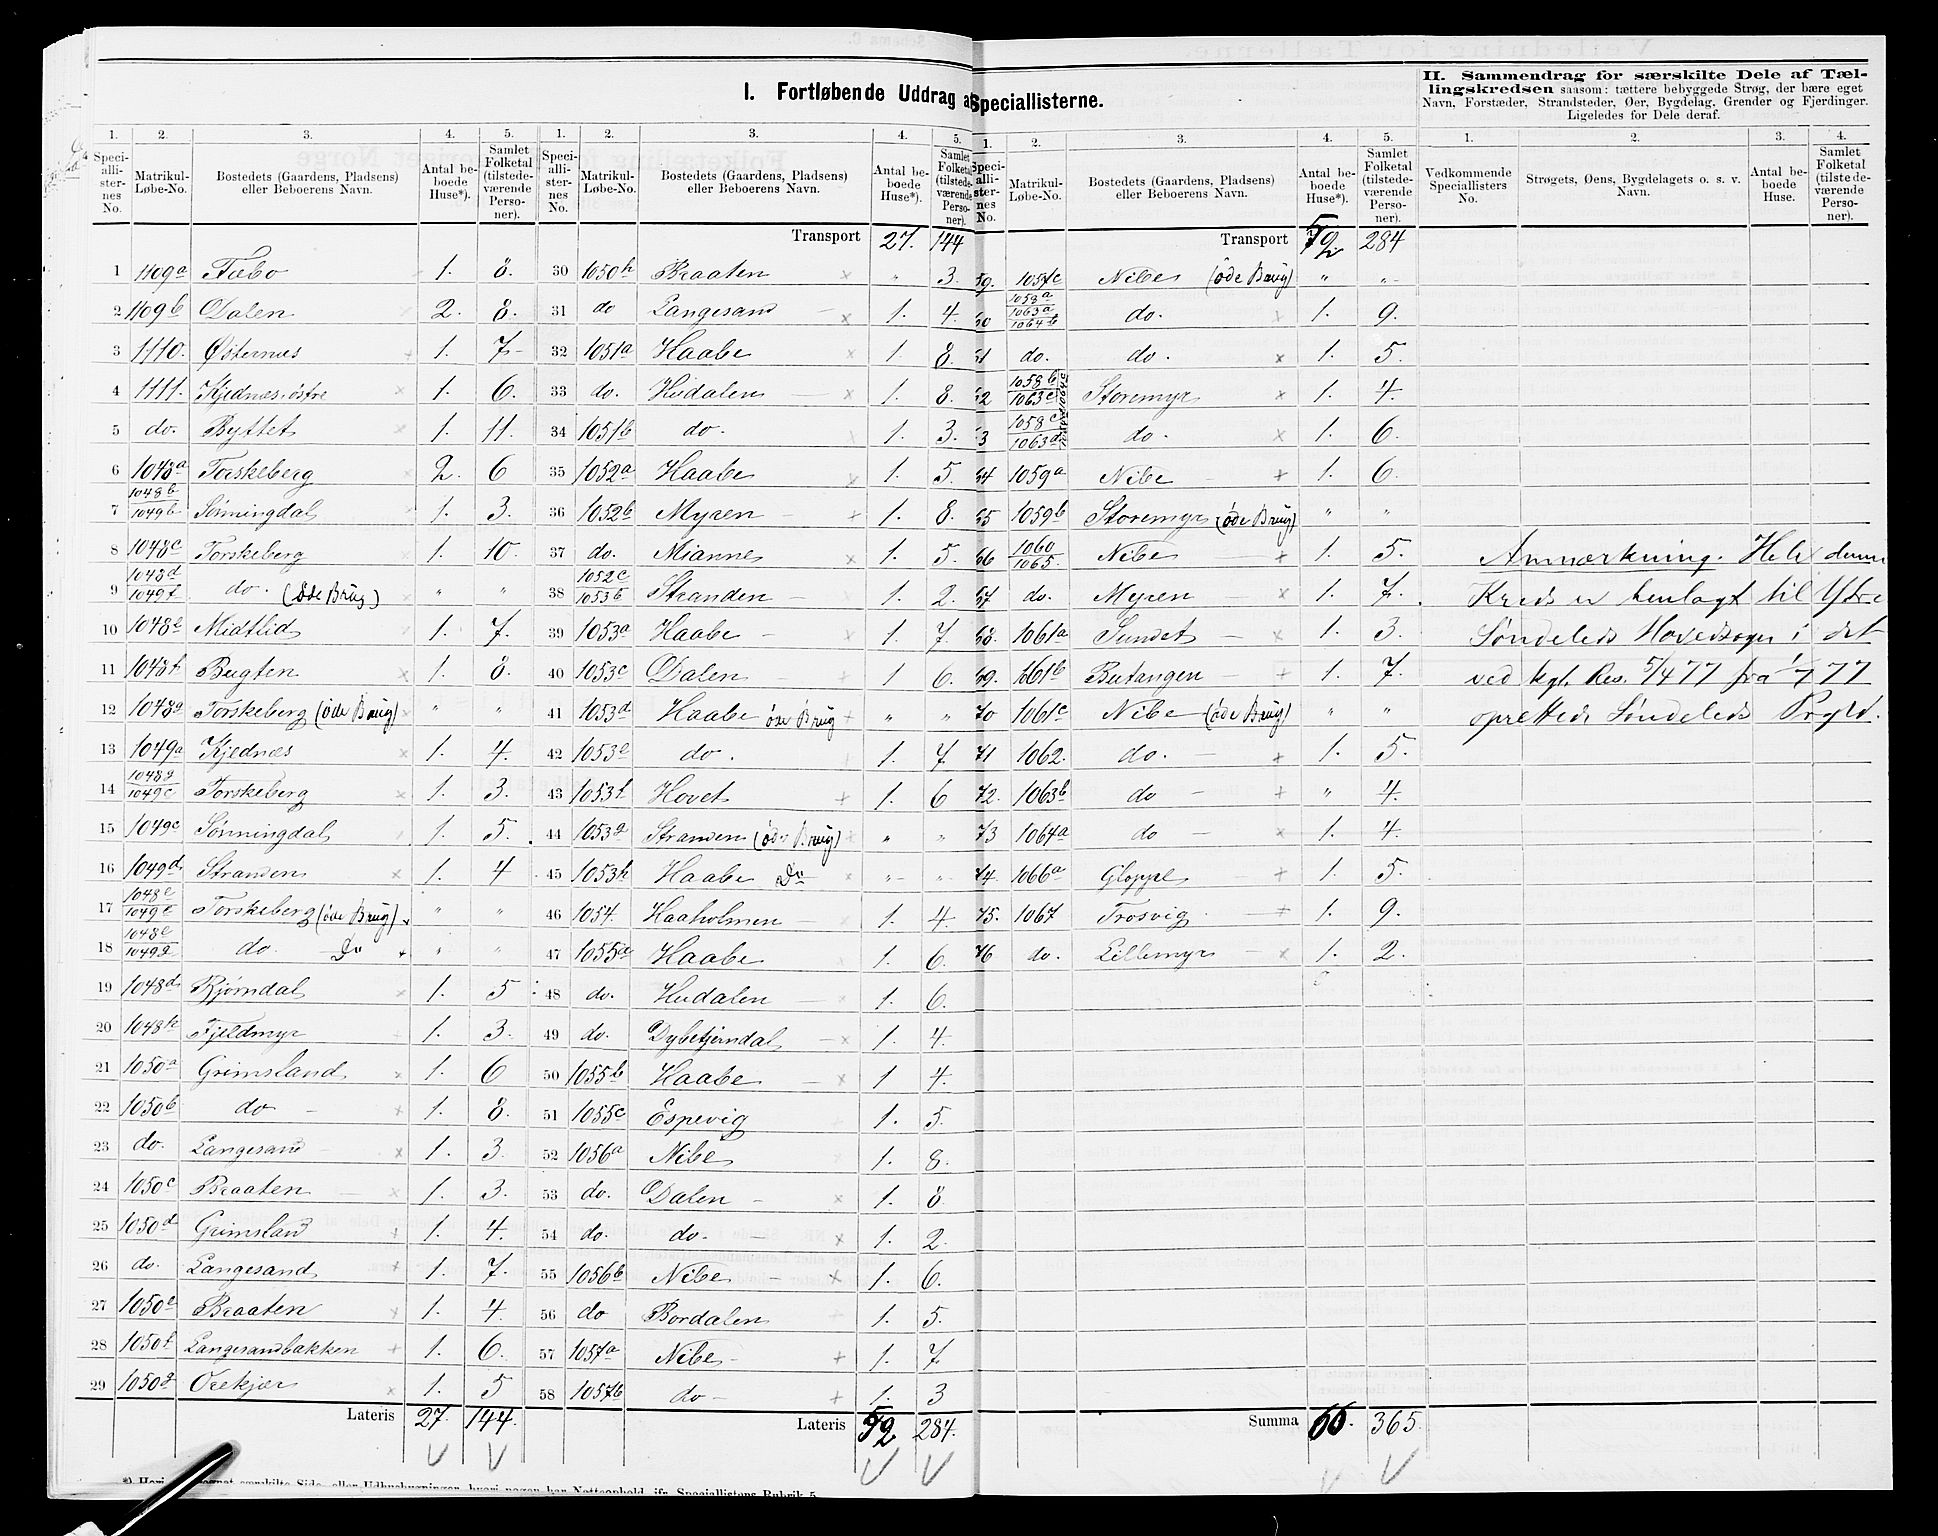 I. Fortløbende Uddrag af Speciallisterne.
II. Sammendrag for særskilte Dele af Tæl-
lingskredsen saasom: tættere bebyggede Strøg, der bære eget
Navn, Forstæder, Strandsteder, Øer, Bygdelag, Grender og Fjerdinger.
Ligeledes for Dele deraf.
1. 2. 3. 4. 5.
Speci-alli-ster-nes No. Matrikul-Løbe-No. Bostedets (Gaardens, Pladsens) eller Beboerens Navn. Antal be-boede Huse*). Samlet Folketal (tilstede-værende Perso-ner).
1 1109a Fæbo 1. 8.
2 1109b Dalen 2. 8.
3 1110. Østernæs 1. 7
4 1111. Kjednæs østre 1. 6.
5 do. Byttet 1. 11.
6 1048a Torskeberg 2. 6
7 1048b 1049b Sønningdal 1. 3.
8 1048c Torskeberg 1. 10.
9 1048d 1049f do. (øde Brug) " "
10 1048e Midtlid 1. 7.
11 1048f Bugten 1. 8.
12 1048g Torskeberg (øde Brug) " "
13 1049a Kjednæs 1. 4.
14 1048g 1049c Torskeberg 1. 3.
15 1049c Sønningdal 1. 5.
16 1049d Stranden 1. 4
17 1048e 1049e Torskeberg (øde Brug) " "
18 1048e 1049g do. Do " "
19 1048d Bjørndal 1. 5
20 1048h Fjeldmyr 1. 3.
21 1050a Grimsland 1. 6
22 1050b do 1. 8.
23 do. Langesand 1. 3.
24 1050c Braaten 1. 3.
25 1050d Grimsland 1. 4.
26 do. Langesand 1. 7.
27 1050e Braaten 1. 4.
28 1050f Langesandbakken 1. 6.
29 1050g Orekjær 1. 5
Lateris 27. 144.
1. 2. 3. 4. 5.
Speci-alli-ster-nes No. Matrikul-Løbe-No. Bostedets (Gaardens, Pladsens) eller Beboerens Navn. Antal be-boede Huse*). Samlet Folketal (tilstede-værende Perso-ner).
Transport 27. 144
30 1050h Braaten " 3.
31 do Langesand 1. 4.
32 1051a Haabe 1. 8.
33 do. Hødalen 1. 8.
34 1051b do. 1. 3.
35 1052a Haabe 1. 5.
36 1052b Myren 1. 8.
37 do. Mianne 1. 5.
38 1052c 1053b Stranden 1. 2.
39 1053a Haabe 1. 7.
40 1053c Dalen 1 6.
41 1053d Haabe øde Brug " "
42 1053e do. 1. 7
43 1053f Hovet 1. 6
44 1053g Stranden (øde Brug) " "
45 1053h Haabe Do " "
46 1054. Haaholmen 1. 4.
47 1055a Haabe 1. 6.
48 do. Hudalen 1. 6.
49 do. Dybetjerndal 1. 4.
50 1055b Haabe 1 4.
51 1055c Espevig 1. 5.
52 1056a Nibe 1. 8.
53 do. Dalen 1. 8.
54 do. do. 1. 2.
55 1056b Nibe 1. 6.
56 do Bordalen 1. 5.
57 1057a Nibe 1. 7
58 1057b do 1. 3
Lateris 52 284.
1. 2. 3. 4. 5.
Speci-alli-ster-nes No. Matrikul-Løbe-No. Bostedets (Gaardens, Pladsens) eller Beboerens Navn. Antal be-boede Huse*). Samlet Folketal (tilstede-værende Perso-ner).
Transport 52 284
59. 1057c Nibe (øde Brug) " "
60 1058a 1063a 1064b do. 1. 9.
61 do. do. 1. 5.
62 1058b 1063c Storemyr 1. 4.
63 1058c 1063d do. 1. 6.
64 1059a Nibe 1. 6.
65 1059b Storemyr (øde Brug) " "
66 1060 1065. Nibe 1. 5.
67 do. Myren 1. 7.
68. 1061a Sundet 1. 3.
69. 1061b Butangen 1. 7.
70 1061c Nibe (øde Brug) " "
71 1062. do. 1. 5.
72. 1063b do " 4.
73 1064a do 1. 4.
74. 1066a Gloppe 1. 5.
75. 1067 Trosvig 1. 9.
76 do. Lillemyr 1. 2.
Summa 66. 365.
1. 2. 3. 4.
Vedkommende Speciallisters No. Strøgets, Øens, Bygdelagets o. s. v. Navn. Antal be-boede Huse. Samlet Folketal (tilstede-værende Perso-ner).
Anmærkning. Hele denne
Kreds er henlagt til Ytre
Søndeleds Hovedsogn i det
ved kgl. Res. 5/4 77 fra 1/7 77
oprettede Søndeleds Prgld.